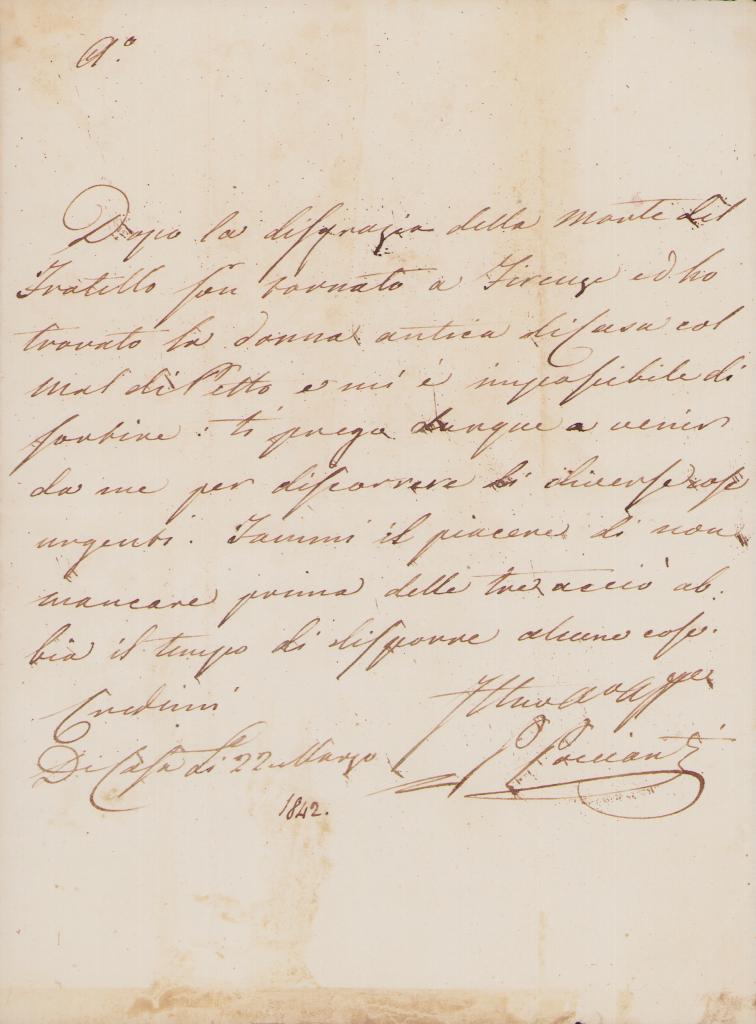 A.º
Dopo la disgrazia della morte del
Fratello son tornato a Firenze ed ho
trovato la donna antica di Casa col
mal di Petto e mi è impossibile di
sortire: ti prego dunque a venir
da me per discorrere di diverse cose
urgenti. Fammi il piacere di non
mancare prima delle tre acciò ab:
bia il tempo di disporre alcune cose.
Credimi
Il tuo Aº Affe
Di Casa li 22 Marzo
P Poccianti
1842.